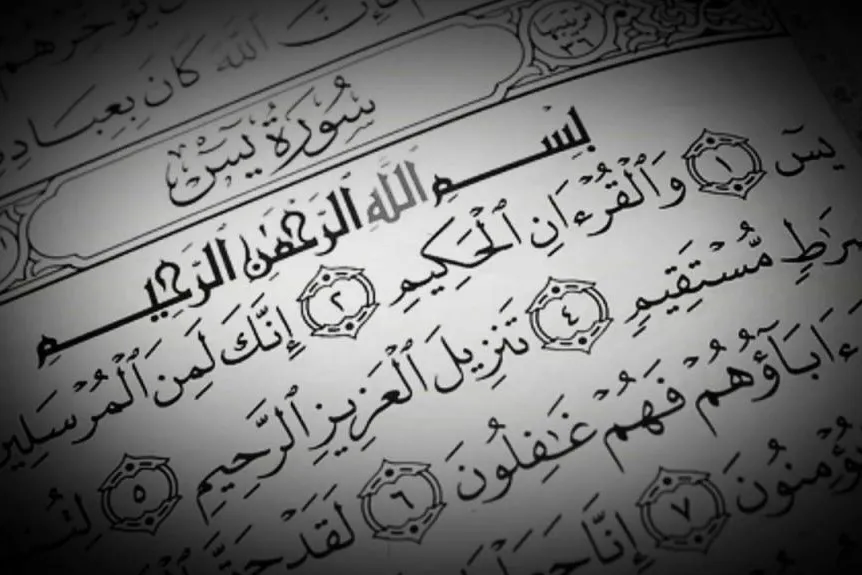 إِنَّ ٱللَّهَ كَانَ بِعِبَادِهِ
سُورَةُ يسٓ
بِسْمِ ٱللَّهِ ٱلرَّحْمَٰنِ ٱلرَّحِيمِ
يسٓ ١ وَٱلْقُرْءَانِ ٱلْحَكِيمِ ٢ إِنَّكَ لَمِنَ ٱلْمُرْسَلِينَ
مُّسْتَقِيمٍ ٤ تَنزِيلَ ٱلْعَزِيزِ ٱلرَّحِيمِ ٥
ءَابَآؤُهُمْ فَهُمْ غَٰفِلُونَ ٦ لَقَدْ
٧ إِنَّا